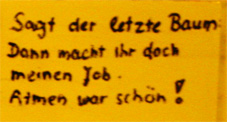 Sagt der letzte Baum:
Dann macht ihr doch
meinen Job.
Atmen war schön!